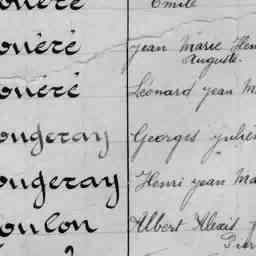 ouéré Emile
ouéré Jean Marie Hen
Auguste.
ouéré Léonard Jean M
ougeray Georges Julien
ougeray Henri Jean Ma
oulon Albert Alexis